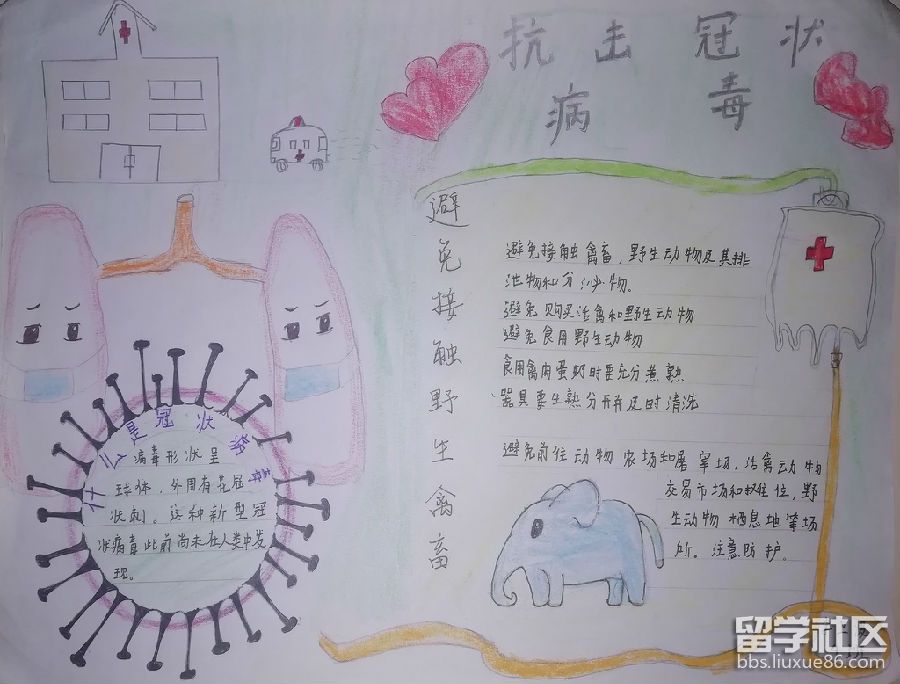 抗击冠状
病毒
什么是冠状病毒
病毒形状呈
球体，外围有花冠
状刺。这种新型冠
状病毒此前尚未在人类中发
现。
避免接触野生禽畜
避免接触禽畜，野生动物及其排
泄物和分泌物。
避免购买活禽和野生动物
避免食用野生动物
食用禽肉蛋奶时要充分煮熟
器具要生熟分开并及时清洗
避免前往动物农场和屠宰场，活禽动物
交易市场和摊位，野
生动物栖息地等场
所。注意防护。
留学社区
bbs.liuxue86.com